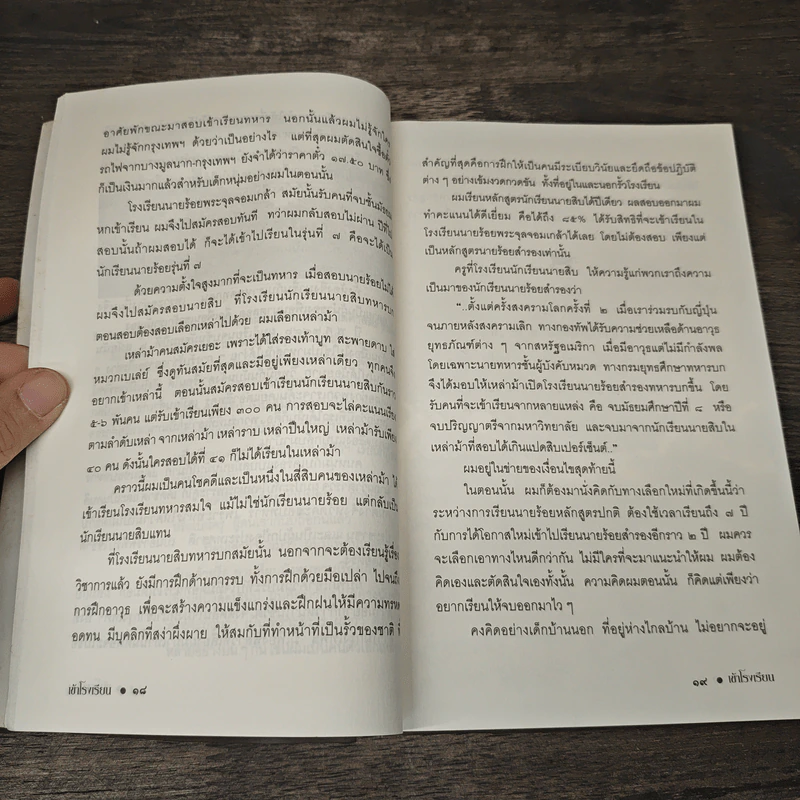 อาศัยพักขณะมาสอบเข้าเรียนทหาร นอกนั้นแล้วผมไม่รู้จักใคร
ผมไม่รู้จักกรุงเทพฯ ด้วยว่าเป็นอย่างไร แต่ที่สุดผมตัดสินใจซื้อตั๋ว
รถไฟจากบางมูลนาก-กรุงเทพฯ ยังจำได้ว่าราคาตั๋ว ๑๗.๕๐ บาท ซึ่ง
ก็เป็นเงินมากแล้วสำหรับเด็กหนุ่มอย่างผมในตอนนั้น
โรงเรียนนายร้อยพระจุลจอมเกล้า สมัยนั้นรับคนที่จบชั้นมัธยม
หกเข้าเรียน ผมจึงไปสมัครสอบทันที ทว่าผมกลับสอบไม่ผ่าน ปีที่
สอบนั้นถ้าผมสอบได้ ก็จะได้เข้าไปเรียนในรุ่นที่ ๗ คือจะได้เป็น
นักเรียนนายร้อยรุ่นที่ ๗
ด้วยความตั้งใจสูงมากที่จะเป็นทหาร เมื่อสอบนายร้อยไม่ได้
ผมจึงไปสมัครสอบนายสิบ ที่โรงเรียนนักเรียนนายสิบทหารบก
ตอนสอบต้องสอบเลือกเหล่าไปด้วย ผมเลือกเหล่าม้า
เหล่าม้าคนสมัครเยอะ เพราะได้ใส่รองเท้าบูท สะพายดาบ ใส่
หมวกเบเล่ย์ ซึ่งดูทันสมัยที่สุดและมีอยู่เพียงเหล่าเดียว ทุกคนจึง
อยากเข้าเหล่านี้ ตอนนั้นสมัครสอบเข้าเรียนนักเรียนนายสิบกันราว
๕-๖ พันคน แต่รับเข้าเรียนเพียง ๓๐๐ คน การสอบจะไล่คะแนนเรียง
ตามลำดับเหล่า จากเหล่าม้า เหล่าราบ เหล่าปืนใหญ่ เหล่าม้ารับเพียง
๔๐ คน ดังนั้นใครสอบได้ที่ ๔๑ ก็ไม่ได้เรียนในเหล่าม้า
คราวนี้ผมเป็นคนโชคดีและเป็นหนึ่งในสี่สิบคนของเหล่าม้า ได้
เข้าเรียนโรงเรียนทหารสมใจ แม้ไม่ใช่นักเรียนนายร้อย แต่กลับเป็น
นักเรียนนายสิบแทน
ที่โรงเรียนนายสิบทหารบกสมัยนั้น นอกจากจะต้องเรียนรู้เรื่อง
วิชาการแล้ว ยังมีการฝึกด้านการรบ ทั้งการฝึกด้วยมือเปล่า ไปจนถึง
การฝึกอาวุธ เพื่อจะสร้างความแข็งแกร่งและฝึกฝนให้มีความทรหด
อดทน มีบุคลิกที่สง่าผึ่งผาย ให้สมกับที่ทำหน้าที่เป็นรั้วของชาติ ที่
เข้าโรงเรียน ● ๑๘
สำคัญที่สุดคือการฝึกให้เป็นคนมีระเบียบวินัยและยึดถือข้อปฏิบัติ
ต่าง ๆ อย่างเข้มงวดกวดขัน ทั้งที่อยู่ในและนอกรั้วโรงเรียน
ผมเรียนหลักสูตรนักเรียนนายสิบได้ปีเดียว ผลสอบออกมาผม
ทำคะแนนได้ดีเยี่ยม คือได้ถึง ๘๕% ได้รับสิทธิที่จะเข้าเรียนใน
โรงเรียนนายร้อยพระจุลจอมเกล้าได้เลย โดยไม่ต้องสอบ เพียงแต่
เป็นหลักสูตรนายร้อยสำรองเท่านั้น
ครูที่โรงเรียนนักเรียนนายสิบ ให้ความรู้แก่พวกเราถึงความ
เป็นมาของนักเรียนนายร้อยสำรองว่า
“..ตั้งแต่ครั้งสงครามโลกครั้งที่ ๒ เมื่อเราร่วมรบกับญี่ปุ่น
จนภายหลังสงครามเลิก ทางกองทัพได้รับความช่วยเหลือด้านอาวุธ
ยุทธภัณฑ์ต่าง ๆ จากสหรัฐอเมริกา เมื่อมีอาวุธแต่ไม่มีกำลังพล
โดยเฉพาะนายทหารชั้นผู้บังคับหมวด ทางกรมยุทธศึกษาทหารบก
จึงได้มอบให้เหล่าม้าเปิดโรงเรียนนายร้อยสำรองทหารบกขึ้น โดย
รับคนที่จะเข้าเรียนจากหลายแหล่ง คือ จบมัธยมศึกษาปีที่ ๘ หรือ
จบปริญญาตรีจากมหาวิทยาลัย และจบมาจากนักเรียนนายสิบใน
เหล่าม้าที่สอบได้เกินแปดสิบเปอร์เซ็นต์..”
ผมอยู่ในข่ายของเงื่อนไขสุดท้ายนี้
ในตอนนั้น ผมก็ต้องมานั่งคิดกับทางเลือกใหม่ที่เกิดขึ้นนี้ว่า
ระหว่างการเรียนนายร้อยหลักสูตรปกติ ต้องใช้เวลาเรียนถึง ๗ ปี
กับการได้โอกาสใหม่เข้าไปเรียนนายร้อยสำรองอีกราว ๒ ปี ผมควร
จะเลือกเอาทางไหนดีกว่ากัน ไม่มีใครที่จะมาแนะนำให้ผม ผมต้อง
คิดเองและตัดสินใจเองทั้งนั้น ความคิดผมตอนนั้น ก็คิดแต่เพียงว่า
อยากเรียนให้จบออกมาไว ๆ
คงคิดอย่างเด็กบ้านนอก ที่อยู่ห่างไกลบ้าน ไม่อยากจะอยู่
๑๙ ● เข้าโรงเรียน